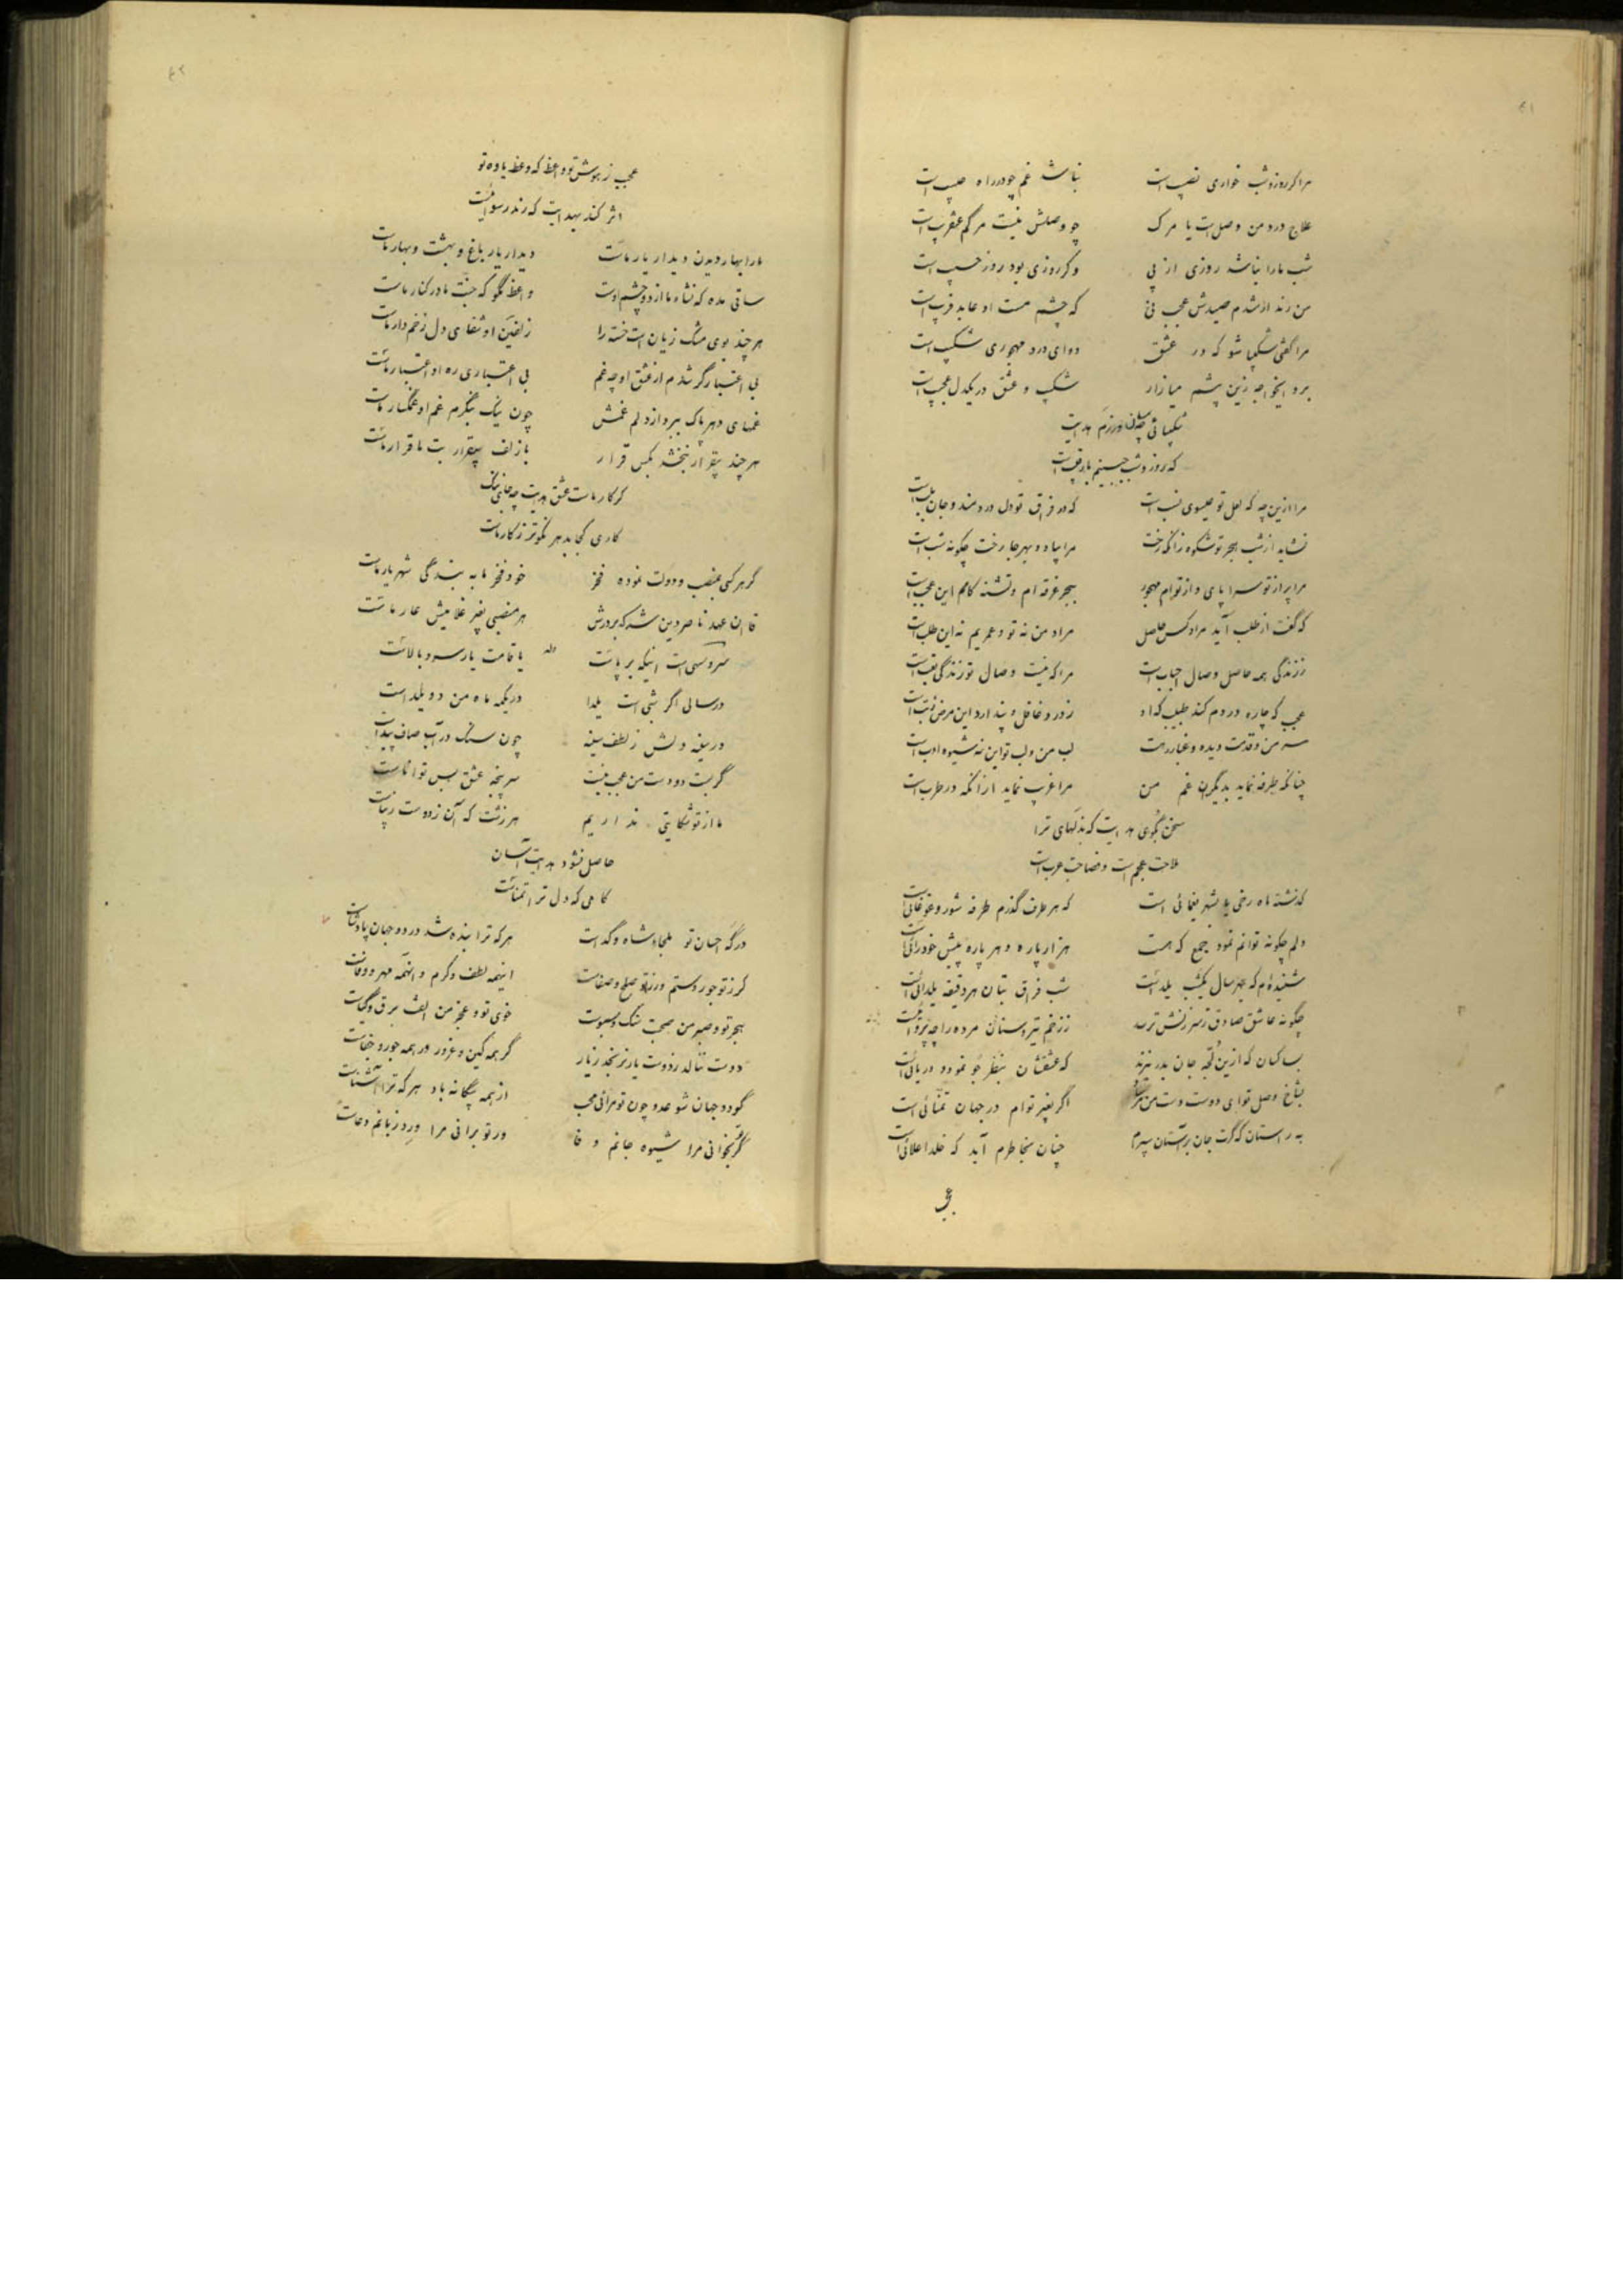 مرا گر روز و شب خواری نصیب است
نباشد غم چو در راه حبیب است
علاج درد من وصل است یا مرگ
چو وصلش نیست مرگم عنقریب است
شب ما را نباشد روزی از پی
وگر روزی بود روز حسیب است
من رند ار شدم صیدش عجب نی
که چشم مست او عابد فریب است
مرا گفتی شکیبا شو که در عشق
دوای درد مهجوری شکیب است
برو ایخواجه زین پشم میازار
شکیب و عشق در یکدل عجیب است
شکیبائی چسان ورزم هدایت
که روز و شب حبیبم با رقیب است
مرا ازین چه که لعل تو عیسوی نسب است
که در فراق تو دل دردمند و جان بلب است
نشاید از شب هجر تو شکوه زانکه رخت
مرا بیاد و بهر جا رخت چگونه شب است
مرا پر از تو سراپای و از تو ام مهجور
ببحر غرقه ام و تشنه کامم این عجب است
که گفت از طلب آید مراد کس حاصل
مراد من نه تو و عمریم نه این طلب است
ز زندگی همه حاصل وصال احباب است
مرا که نیست وصال تو زندگی تعب است
عجب که چاره دردم کند طبیب که او
ز درد غافل و پندارد این مرض ز تب است
سر من و قدمت دیده و غبار رهت
لب من و لب تو این نه شیوه ادب است
چنانکه طرفه نماید بدیگران غم من
مرا غریب نماید از آنکه در طرب است
سخن بگوی هدایت که بذلهای ترا
ملاحت عجم است و فصاحت عرب است
گذشته ماه رخی یا بشهر یغمائی است
که هر طرف گذرم طرفه شور و غوغائی است
دلم چگونه توانم نمود جمع که هست
هزار پاره و هر پاره پیش خودرائی است
شنیده‌ام که بهر سال یکشب یلداست
شب فراق بتان هر دقیقه یلدائی است
چگونه عاشق صادق ز سرزنش ترسد
ز زخم تیر و سنان مرده را چه پرواست
بسا کسان که ازین لجه جان بدر نبرند
که عشقشان بنظر جو نمود و دریائی است
بشاخ وصل تو ای دوست دست من مرساد
اگر بغیر تو ام در جهان تمنائی است
به راستان که گرت جان بر آستان سپرم
چنان بخاطرم آید که خلد اعلائی است
عجب
عجب ز هوش تو واعظ که وعظ یاوه تو
اثر کند بهدایت که رند رسوائیست
ما را بهار دیدن دیدار یار ماست
دیدار یار باغ و بهشت و بهار ماست
ساقی مده که نشاه ما از دو چشم اوست
واعظ مگو که جنت ما در کنار ماست
هر چند بوی مشک زیان است خسته را
زلفین او شفای دل زخم‌دار ماست
بی اعتبار گر شدم از عشق او چه غم
بی اعتباری ره او اعتبار ماست
غمهای دهر پاک ببرد از دلم غمش
چون نیک بنگرم غم او غمگسار ماست
هر چند بیقرار نبخشد بکس قرار
با زلف بیقرار بت ما قرار ماست
گر کار ماست عشق هدایت چه جای ننگ
کاری کجا بدهر نکوتر ز کار ماست
گر هر کسی بمنصب و دولت نموده فخر
خود فخر ما به بندگی شهریار ماست
قاآن عهد ناصر دین شه که بر درش
هر منصبی بغیر غلامیش عار ماست
وله
سرو سهی است اینکه برپاست
یا قامت یار سرو بالاست
در سالی اگر شبی است یلدا
در یکمه ماه من دو یلداست
در سینه دلش ز لطف سینه
چون سنگ در آب صاف پیداست
گر بست دو دست من عجب نیست
سرپنجه عشق بس تواناست
ما از تو شکایتی نداریم
هر زشت که آن ز دوست زیباست
حاصل نشود هدایت آسان
کامی که دل ترا تمناست
درگه احسان تو ملجاء شاه و گداست
هر که ترا بنده شد در دو جهان پادشاست
گر ز تو جور و ستم ور ز تو صلح و صفاست
اینهمه لطف و کرم و آنهمه مهر و وفاست
هجر تو و صبر من صحبت سنگ و سبوست
خوی تو و عجز من الفت برق و گیاست
دوست ننالد ز دوست یار نرنجد ز یار
گر همه کین و غرور ور همه جور و جفاست
گو دو جهان شو عدو چون تو مرائی محب
از همه بیگانه باد هر که ترا آشناست
گر تو بخوانی مرا شیوه جانم وفا
ور تو برانی مرا ورد زبانم دعاست